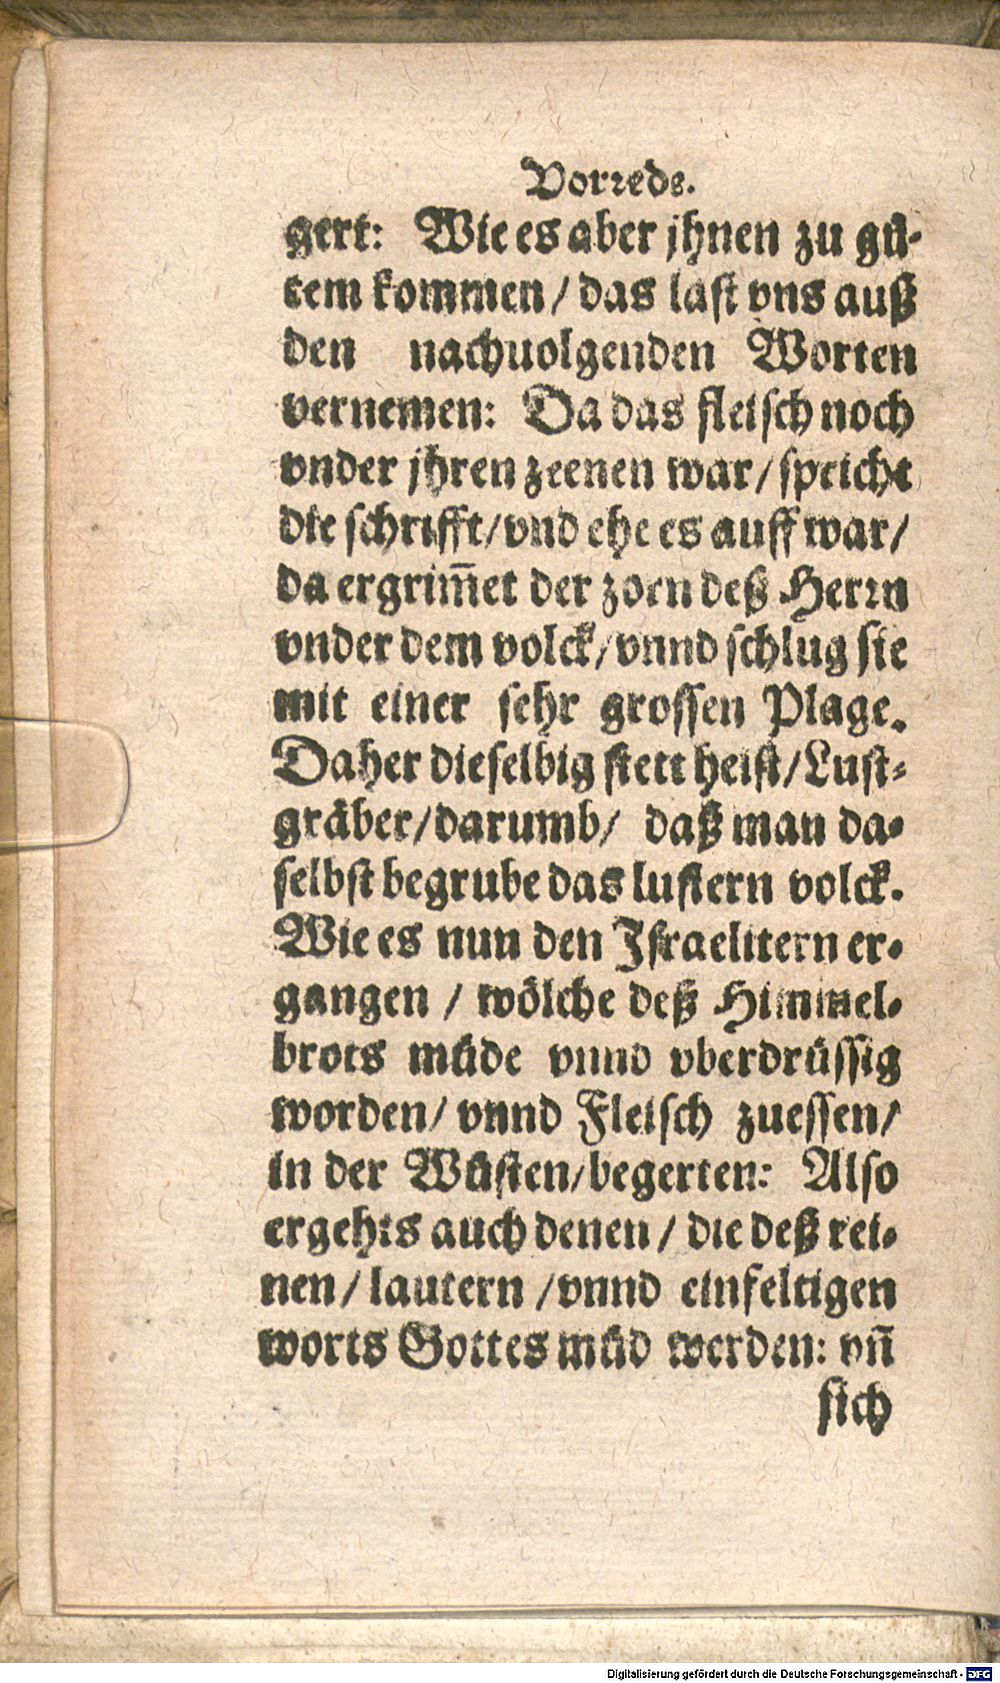 Vorrede.
gert: Wie es aber jhnen zu gů-
tem kommen / das last vns auß
den nachuolgenden Worten
vernemen: Da das fleisch noch
vnder jhren zeenen war / spricht
die schrifft / vnd ehe es auff war /
da ergrim̄et der zorn deß Herrn
vnder dem volck / vnnd schlug sie
mit einer sehr grossen Plage.
Daher dieselbig stett heist / Lust-
gräber / darumb / daß man da-
selbst begrube das lustern volck.
Wie es nun den Israelitern er-
gangen / wölche deß Himmel-
brots můde vnnd vberdrüssig
worden / vnnd Fleisch zuessen /
in der Wůsten / begerten: Also
ergehts auch denen / die deß rei-
nen / lautern / vnnd einfeltigen
worts Gottes můd werden: vn̄
sich
Digitalisierung gefördert durch die Deutsche Forschungsgemeinschaft - DFG